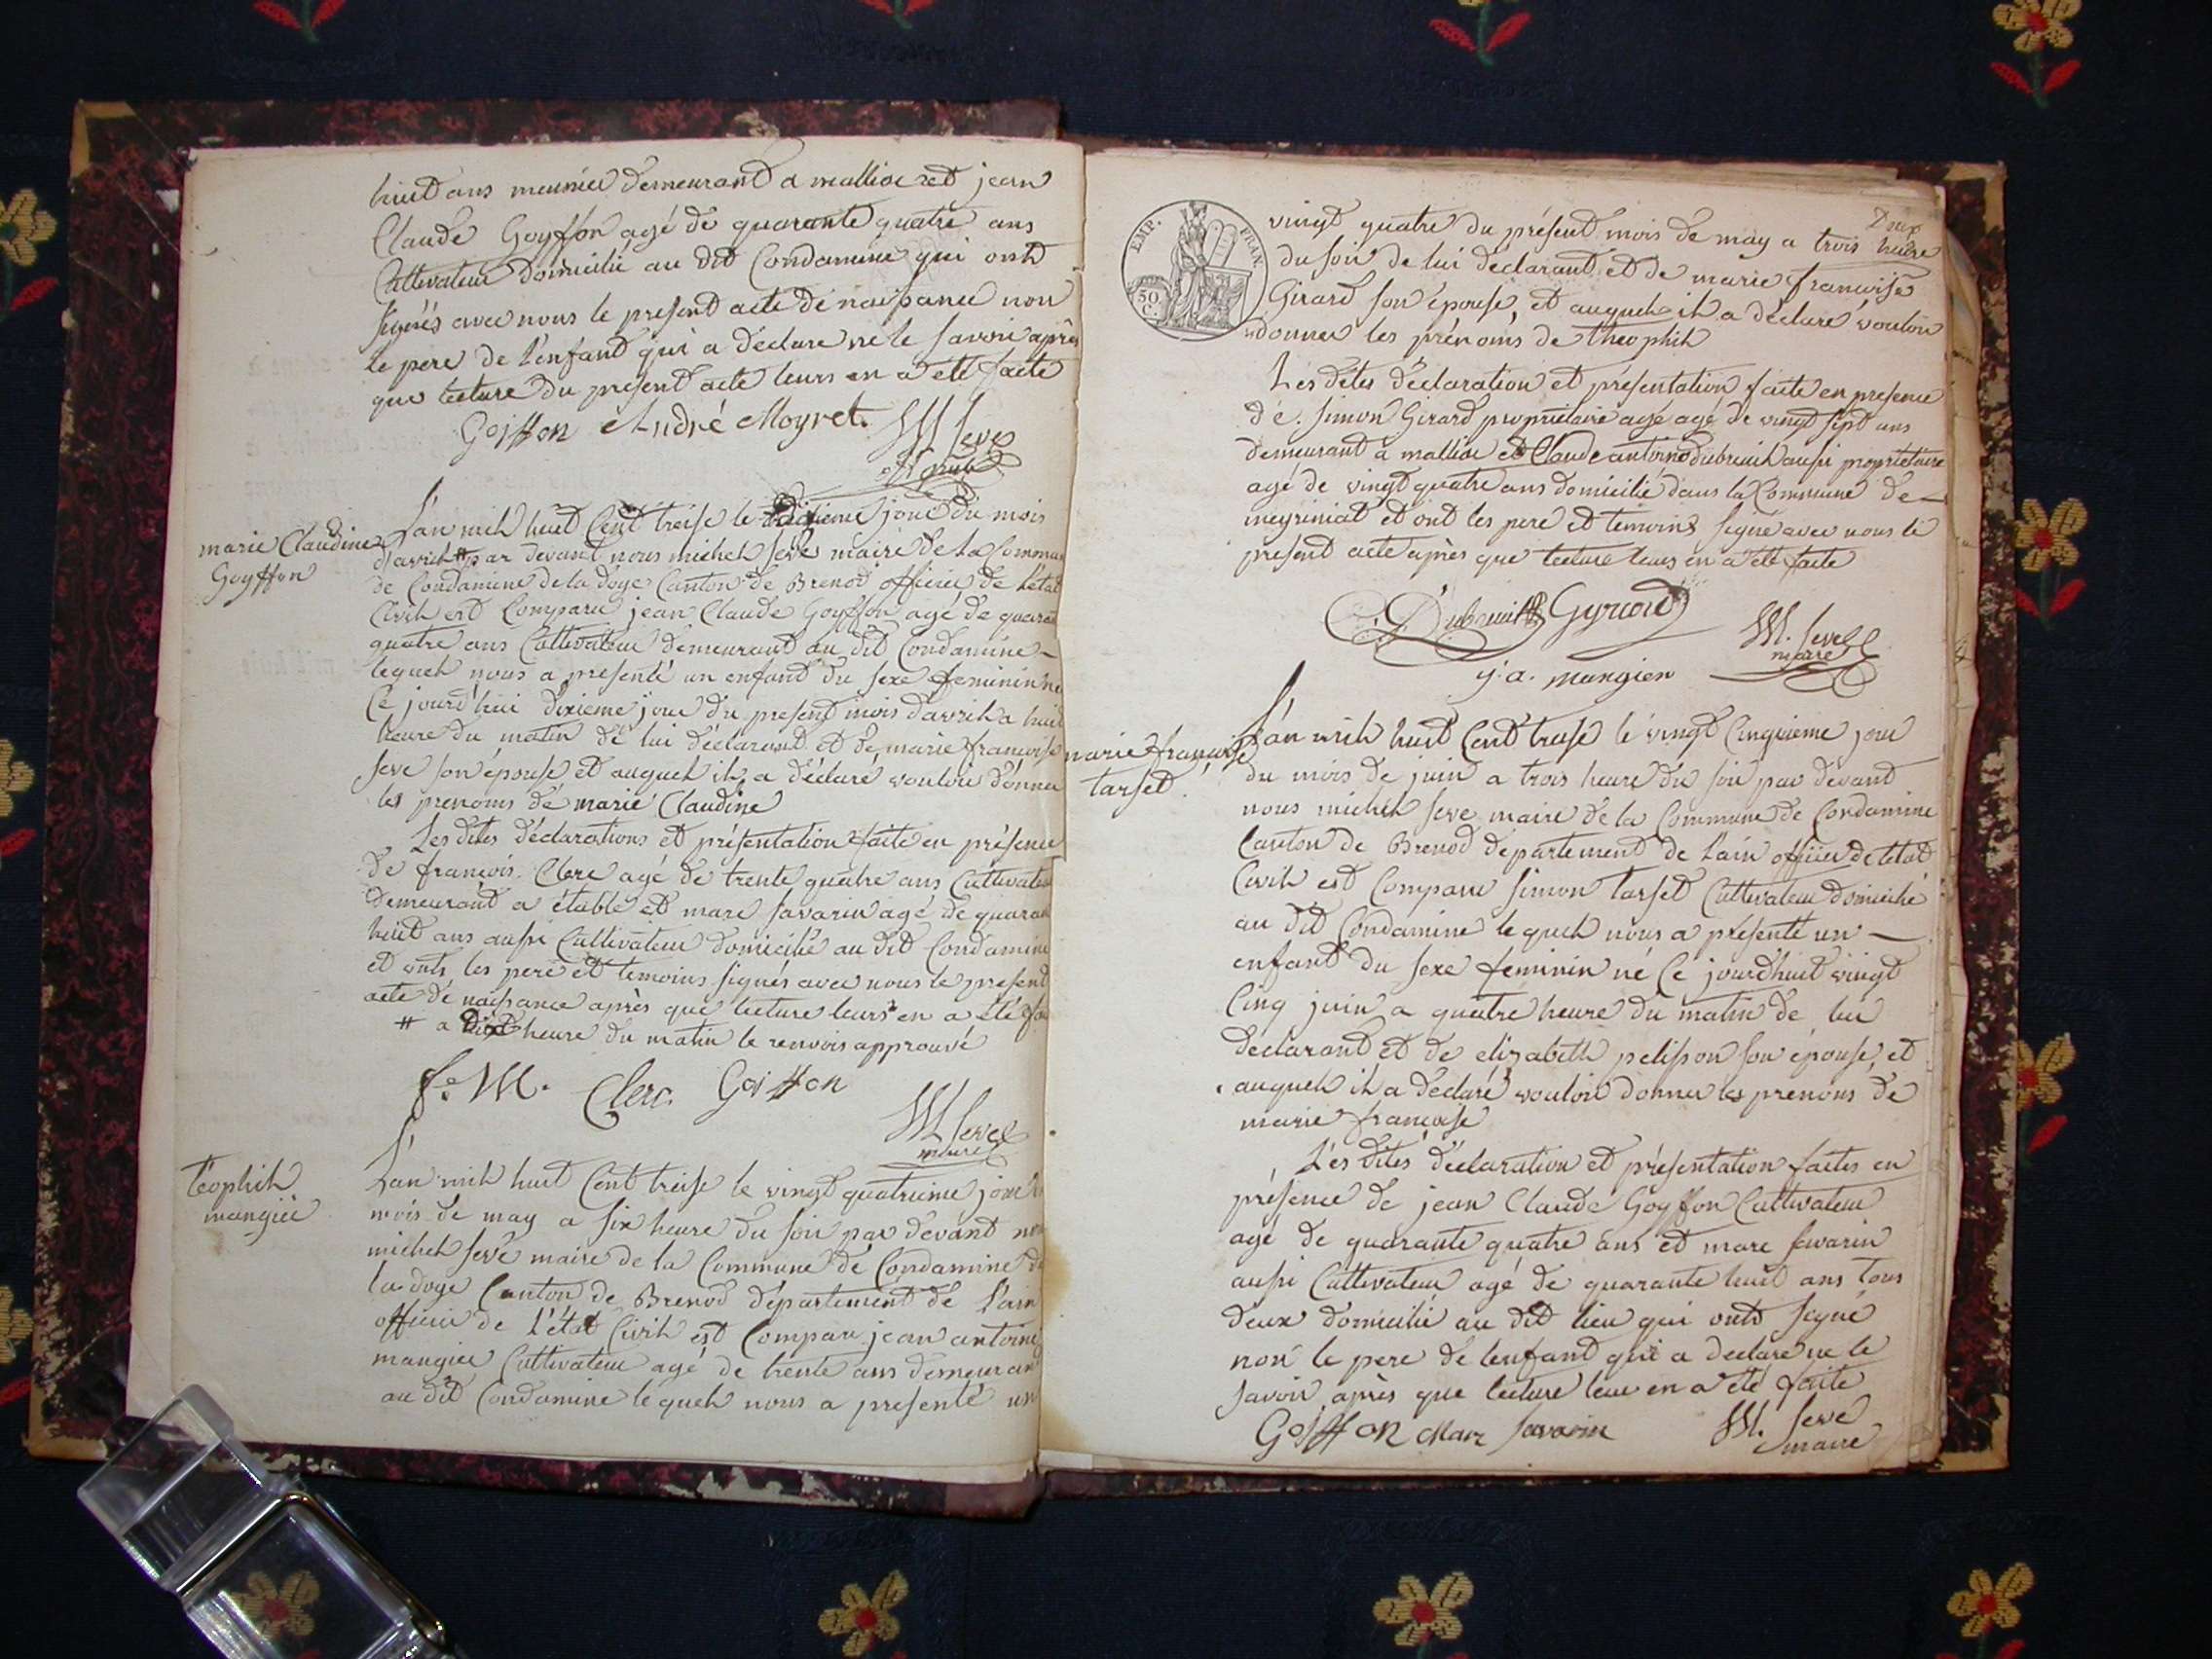 huit ans meunier demeurant a malliat et jean
Claude Goyffon agé de quarante quatre ans
Cultivateur domicilié au dit Condamine qui ont
signés avec nous le present acte de naissance non
le pere de l'enfant qui a declare ne le savoir après
que lecture du present acte leurs en a eté faite
Goiffon André Moyret M Seve
marie Claudine
Goyffon
L'an mil huit Cent treise le dixieme jour du mois
d'avril # par devant nous michel seve maire de la Commune
de Condamine de la doye Canton de Brenod officier de l'état
Civil est Comparu jean Claude Goyffon agé de quarante
quatre ans Cultivateur demeurant au dit Condamine
lequel nous a presenté un enfant du sexe feminin né
Ce jourd'hui dixieme jour du present mois d'avril a huit
heure du matin de lui déclarant et de marie françoise
seve son épouse et auquel il a déclaré vouloir donner
les prenoms de marie Claudine
Les dites déclarations et présentation faite en présence
de françois Clerc agé de trente quatre ans Cultivateur
demeurant a étable et marc savarin agé de quarante
huit ans aussi Cultivateur domicilié au dit Condamine
et onts les pere et temoins signés avec nous le present
acte de naissance après que lecture leurs en a été
# a dix heure du matin le renvois approuvé
Clerc Goiffon
M Seve
maire
téophil
mangier
L'an mil huit Cent treise le vingt quatrieme jour
mois de may a six heure du soir par devant nous
michel seve maire de la Commune de Condamine de
la doye Canton de Brenod département de l'ain
officier de l'état Civil est Comparu jean antoine
mangier Cultivateur agé de trente ans demeurant
au dit Condamine lequel nous a presenté un
EMP. FRAN.
50
C.
vingt quatre du présent mois de may a trois heure
du soir de lui declarant et de marie francoise
Girard son épouse, et auquel il a déclaré vouloir
donner les prénoms de theophil
Les dites déclaration et présentation faite en presence
de simon Girard propriétaire agé agé de vingt sept ans
demeurant a malliat et Claude antoine dubreuil aussi propriétaire
agé de vingt quatre ans domicilié dans la Commune de
meyriniat et ont les pere et temoins signé avec nous le
present acte après que lecture leurs en a été faite
Dubreuil Gyrard M. Seve
maire
j. a. mangier
marie françoise
tarset
L'an mil huit Cent treise le vingt Cinquieme jour
du mois de juin a trois heure du soir par devant
nous michel seve maire de la Commune de Condamine
Canton de Brenod departement de l'ain officier de létat
Civil est Comparu simon tarset Cultivateur domicilié
au dit Condamine lequel nous a présenté un
enfant du sexe feminin né Ce jourdhuit vingt
Cinq juin a quatre heure du matin de lui
declarant et de elizabeth pelisson son épouse, et
auquel il a déclaré vouloir donner les prenoms de
marie francoise
Les dites déclaration et présentation faites en
présence de jean Claude Goyffon Cultivateur
agé de quarante quatre ans et marc savarin
aussi Cultivateur agé de quarante huit ans tous
deux domicilié au dit lieu qui onts signé
non le pere de lenfant qui a declare ne le
savoir après que lecture leur en a été faite
Goiffon Marc Savarin M. Seve
maire